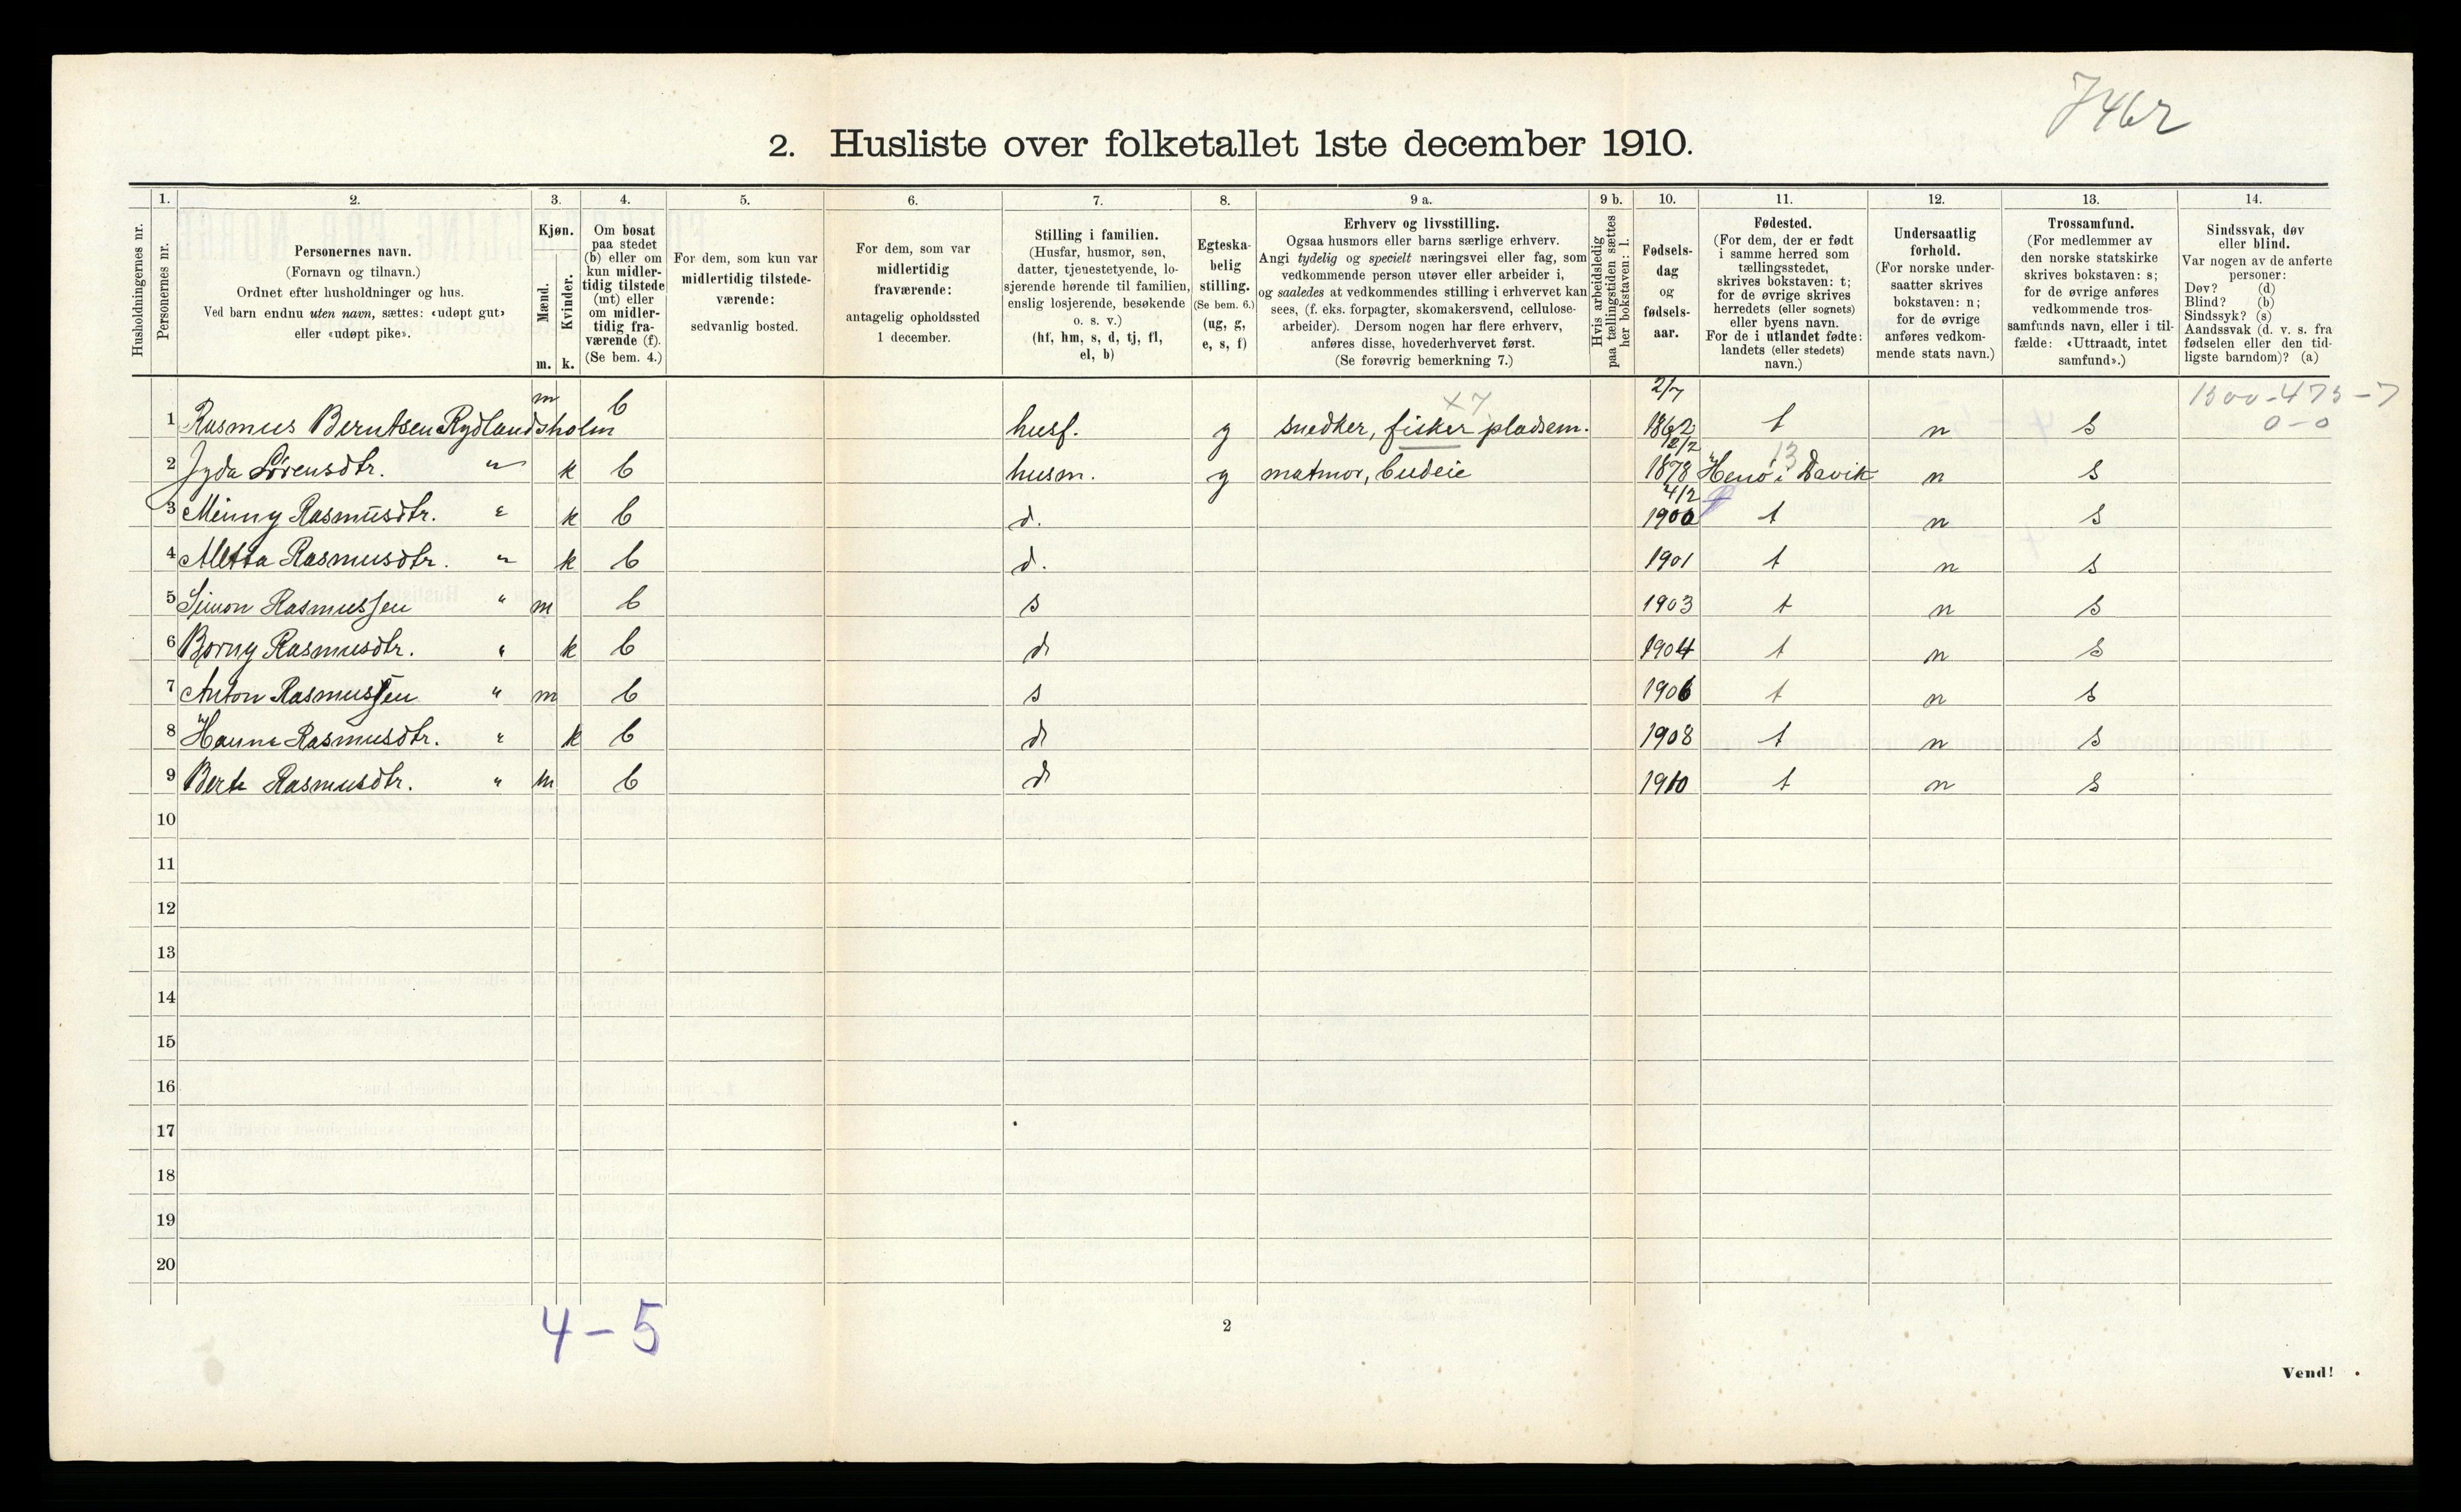 7462
2. Husliste over folketallet 1ste december 1910.
1. 2. 3. 4. 5. 6. 7. 8. 9 a. 9 b. 10. 11. 12. 13. 14.
Husholdningernes nr.
Personernes nr.
Personernes navn.
(Fornavn og tilnavn.)
Ordnet efter husholdninger og hus.
Ved barn endnu uten navn, sættes: «udøpt gut»
eller «udøpt pike».
Kjøn.
Mænd.
Kvinder.
m. k.
Om bosat
paa stedet
(b) eller om
kun midler-
tidig tilstede
(mt) eller
om midler-
tidig fra-
værende (f).
(Se bem. 4.)
For dem, som kun var
midlertidig tilstede-
værende:
sedvanlig bosted.
For dem, som var
midlertidig
fraværende:
antagelig opholdssted
1 december.
Stilling i familien.
(Husfar, husmor, søn,
datter, tjenestetyende, lo-
sjerende hørende til familien,
enslig losjerende, besøkende
o. s. v.)
(hf, hm, s, d, tj, fl,
el, b)
Egteska-
belig
stilling.
(Se bem. 6.)
(ug, g,
e, s, f)
Erhverv og livsstilling.
Ogsaa husmors eller barns særlige erhverv.
Angi tydelig og specielt næringsvei eller fag, som
vedkommende person utøver eller arbeider i,
og saaledes at vedkommendes stilling i erhvervet kan
sees, (f. eks. forpagter, skomakersvend, cellulose-
arbeider). Dersom nogen har flere erhverv,
anføres disse, hovederhvervet først.
(Se forøvrig bemerkning 7.)
Hvis arbeidsledig
paa tællingstiden sættes
her bokstaven: l.
Fødsels-
dag
og
fødsels-
aar.
Fødested.
(For dem, der er født
i samme herred som
tællingsstedet,
skrives bokstaven: t;
for de øvrige skrives
herredets (eller sognets)
eller byens navn.
For de i utlandet fødte:
landets (eller stedets)
navn.)
Undersaatlig
forhold.
(For norske under-
saatter skrives
bokstaven: n;
for de øvrige
anføres vedkom-
mende stats navn.)
Trossamfund.
(For medlemmer av
den norske statskirke
skrives bokstaven: s;
for de øvrige anføres
vedkommende tros-
samfunds navn, eller i til-
fælde: «Uttraadt, intet
samfund».)
Sindssvak, døv
eller blind.
Var nogen av de anførte
personer:
Døv? (d)
Blind? (b)
Sindssyk? (s)
Aandssvak (d. v. s. fra
fødselen eller den tid-
ligste barndom)? (a)
1 Rasmus Berntsen Rydlandsholm m b husf. g snedker, fisker pladsem. x7 2/7 1862 t n s 1300-475-7 0-0
2 Jyda Sørensdtr. " k b husm. g matmor, budeie 2/2 1878 Henø i Davik 13 n s
3 Minny Rasmusdtr. " k b d. 4/2 1900 t n s
4 Aletta Rasmusdtr. " k b d. 1901 t n s
5 Simon Rasmussen " m b s 1903 t n s
6 Borny Rasmusdtr. " k b d 1904 t n s
7 Anton Rasmussen " m b s 1906 t n s
8 Hanna Rasmusdtr. " k b d 1908 t n s
9 Berte Rasmusdtr. " m b d 1910 t n s
10
11
12
13
14
15
16
17
18
19
20
4-5
2
Vend!